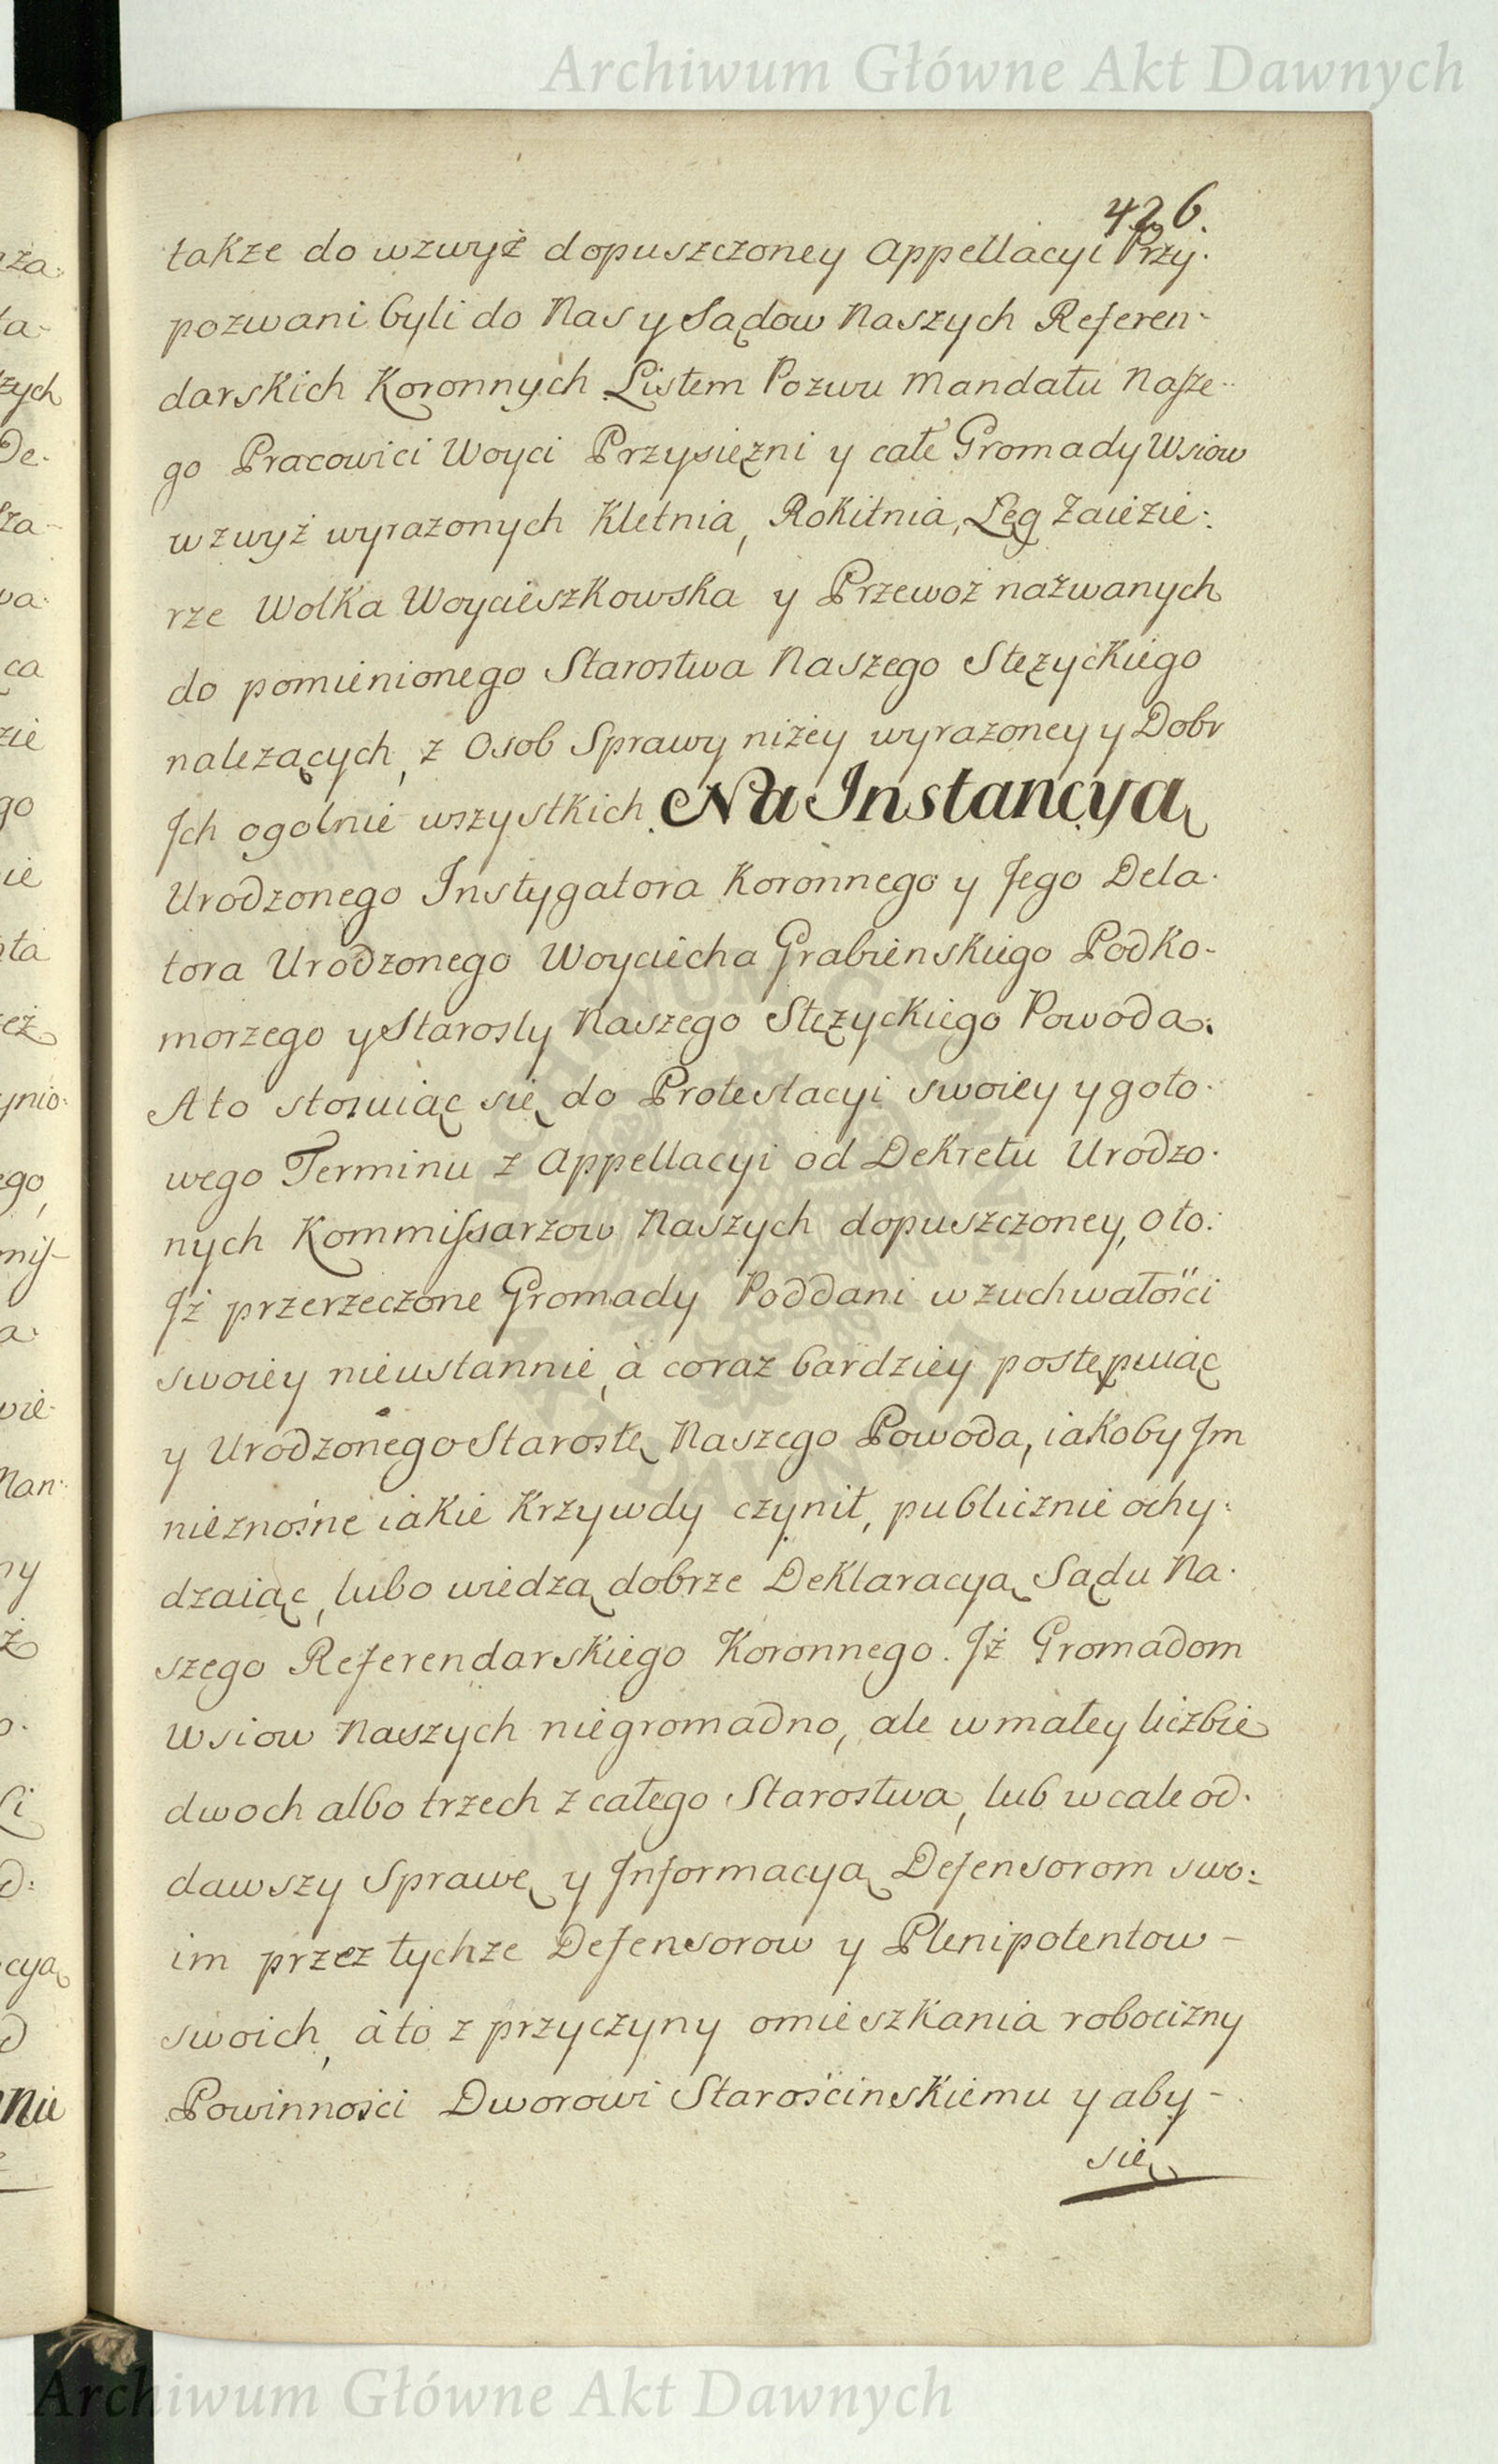 Archiwum Główne Akt Dawnych
426.
także do wzwyż dopuszczoney Appellacyi Przy-
pozwani byli do Nas y Sądow Naszych Referen-
darskich Koronnych Listem Pozwu Mandatu Nasze-
go Pracowici Woyci Przysiężni y całe Gromady Wsiow
wzwyż wyrażonych Kletnia, Rokitnia, Łęg Zaiezie-
rze Wolka Woycieszkowska y Przewoz nazwanych
do pomienionego Starostwa Naszego Stężyckiego
należących, z Osob Sprawy niżey wyrażoney y Dobr
Ich ogolnie wszystkich. Na Instancyą
Urodzonego Instygatora Koronnego y Jego Dela-
tora Urodzonego Woyciecha Grabienskiego Podko-
morzego y Starosty Naszego Stężyckiego Powoda.
A to stosuiąc się do Protestacyi swoiey y goto-
wego Terminu z Appellacyi od Dekretu Urodzo-
nych Kommissarzow Naszych dopuszczoney, o to:
Iż przerzeczone Gromady Poddani w zuchwałości
swoiey nieustannie, à coraz bardziey postępuiąc
y Urodzonego Starostę Naszego Powoda, iakoby Im
nieznośne iakie Krzywdy czynił, publicznie ochy-
dzaiąc, lubo wiedzą dobrze Deklaracyą Sądu Na-
szego Referendarskiego Koronnego. Iż Gromadom
Wsiow Naszych niegromadno, ale w małey liczbie
dwoch albo trzech z całego Starostwa, lub wcale od-
dawszy Sprawę y Informacyą Defensorom swo-
im przez tychże Defensorow y Plenipotentow -
swoich, à to z przyczyny omieszkania robocizny
Powinności Dworowi Starościnskiemu y aby -
się
Archiwum Główne Akt Dawnych